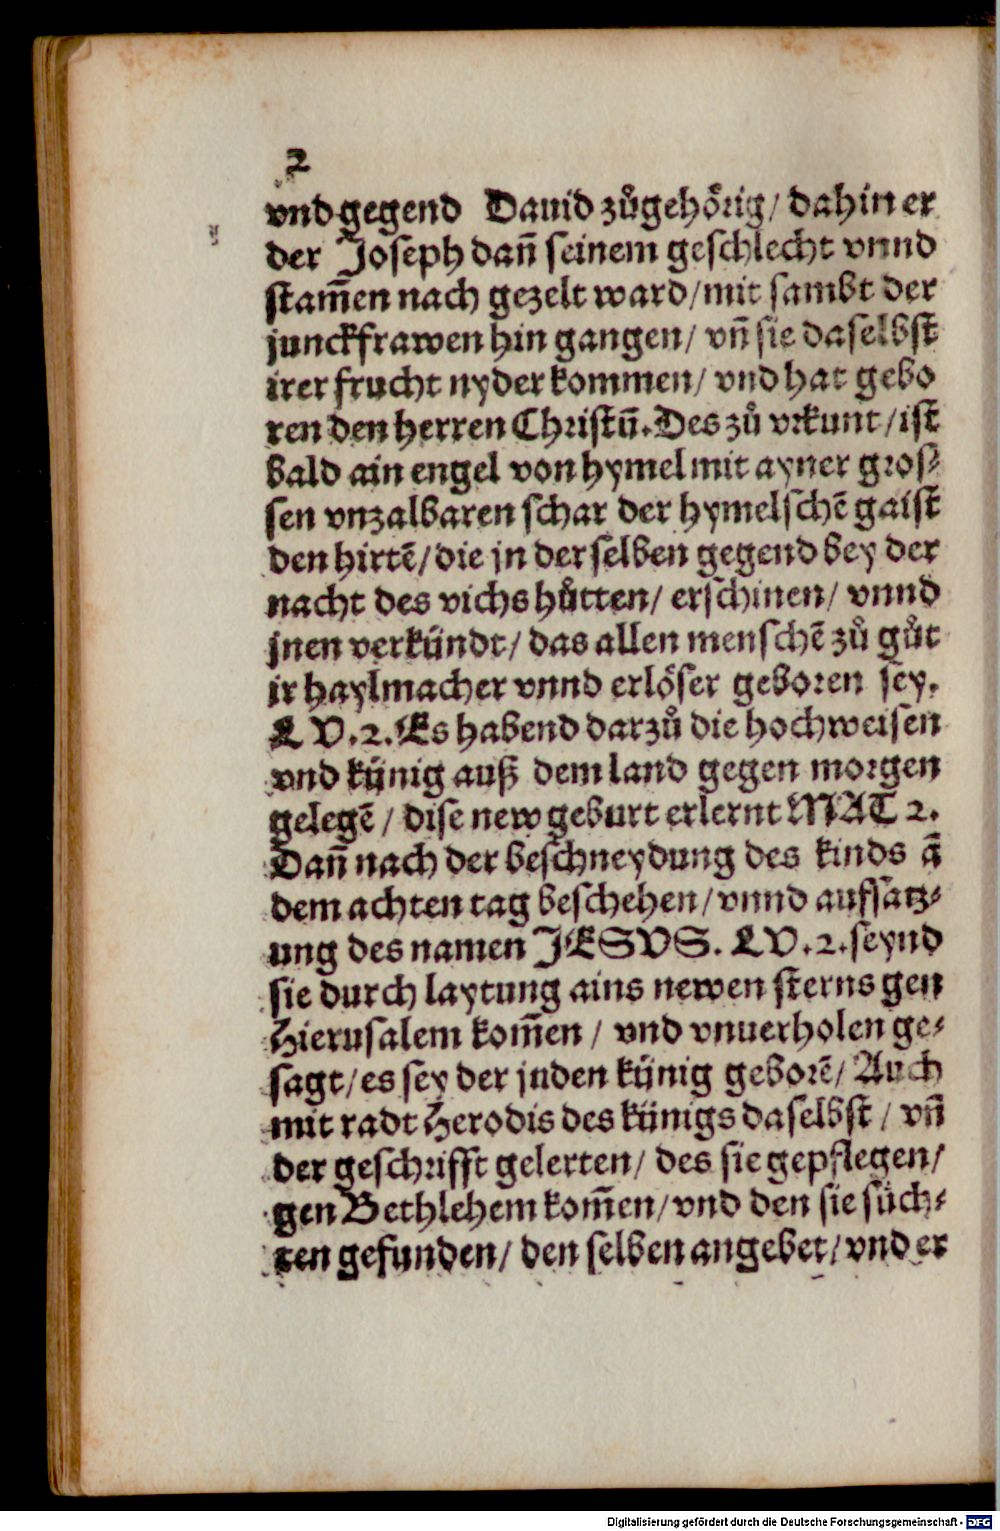 2
vnd gegend Dauid zůgehörig/ dahin er
der Joseph dañ seinem geschlecht vnnd
stam̃en nach gezelt ward/mit sambt der
junckfrawen hin gangen/ vñ sie daselbst
irer frucht nyder kommen/ vnd hat gebo
ren den herren Christũ. Des zů vrkunt/ist
bald ain engel von hymel mit ayner gros⸗
sen vnzalbaren schar der hymelschẽ gaist
den hirtẽ/die jn der selben gegend bey der
nacht des vichs hůtten/ erschinen/ vnnd
jnen verkündt/ das allen menschẽ zů gůt
ir haylmacher vnnd erlöser geboren sey.
LV.2. Es habend darzů die hochweisen
vnd künig auß dem land gegen morgen
gelegẽ/ dise new geburt erlernt MAT 2.
Dañ nach der beschneydung des kinds ã
dem achten tag beschehen/vnnd aufsatz⸗
ung des namen JESVS. LV.2.seynd
sie durch laytung ains newen sterns gen
Hierusalem kom̃en / vnd vnuerholen ge⸗
sagt/es sey der juden künig geborẽ/ Auch
mit radt Herodis des künigs daselbst/ vñ
der geschrifft gelerten/ des sie gepflegen/
gen Bethlehem kom̃en/vnd den sie sůch⸗
ten gefunden/ den selben angebet/vnd er
Digitalisierung gefördert durch die Deutsche Forschungsgemeinschaft - DFG